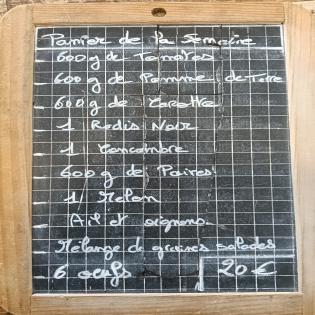 Panier de la Semaine
600 g de Tomates
600 g de Pomme de Terre
600 g de Carotte
1 Radis Noir
1 Concombre
600 g de Poires
1 Melon
Ail et oignons
Mélange de graines salades
6 oeufs 20 €